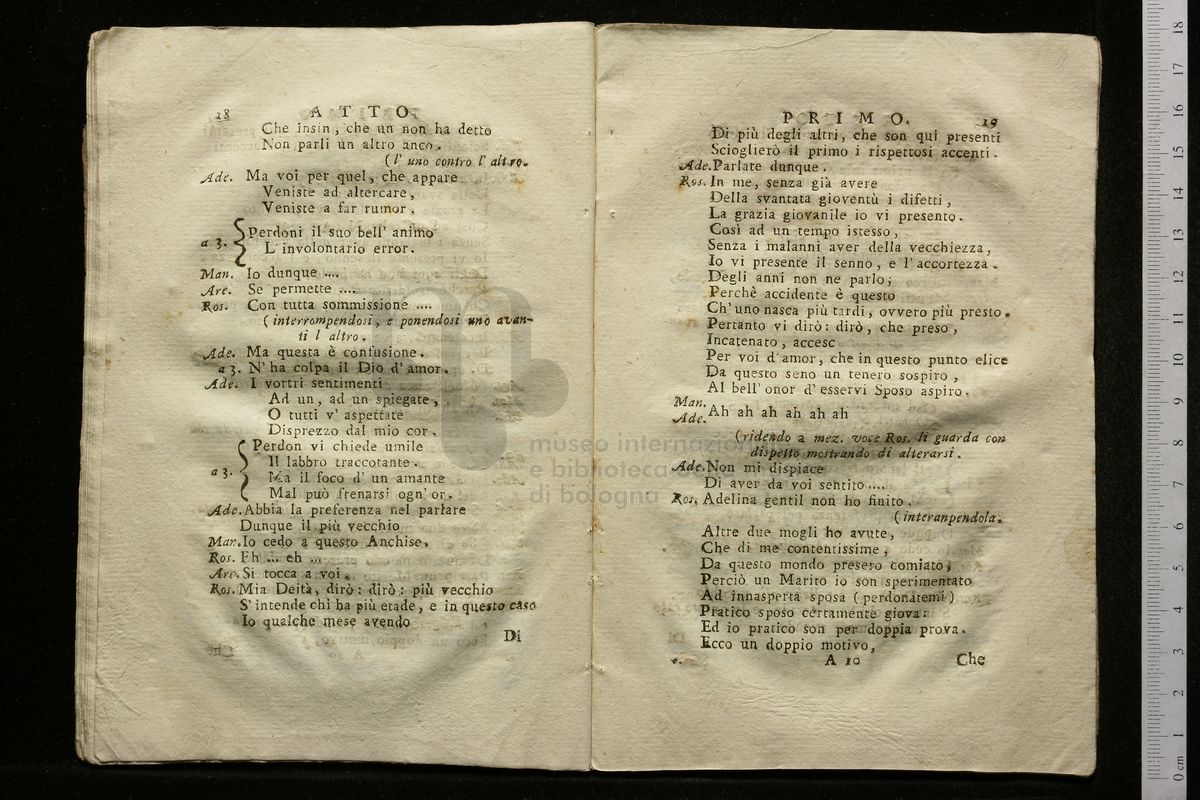 18 ATTO
Che insin, che un non ha detto
Non parli un altro anco.
(l' uno contro l' altro.
Ade. Ma voi per quel, che appare
Veniste ad altercare,
Veniste a far rumor.
a 3. Perdoni il suo bell' animo
L' involontario error.
Man. Io dunque ....
Are. Se permette ....
Ros. Con tutta sommissione ....
(interrompendosi, e ponendosi uno avan-
ti l altro.
Ade. Ma questa è confusione.
a 3. N' ha colpa il Dio d' amor.
Ade. I vortri sentimenti
Ad un, ad un spiegate,
O tutti v' aspettate
Disprezzo dal mio cor.
a 3. Perdon vi chiede umile
Il labbro traccotante.
Ma il foco d' un amante
Mal può frenarsi ogn' or.
Ade. Abbia la preferenza nel parlare
Dunque il più vecchio
Man. Io cedo a questo Anchise.
Ros. Eh ... eh ...
Are. Si tocca a voi.
Ros. Mia Deità, dirò: dirò: più vecchio
S' intende chi ha più etade, e in questo caso
Io qualche mese avendo
Di
PRIMO. 19
Di più degli altri, che son qui presenti
Scioglierò il primo i rispettosi accenti.
Ade. Parlate dunque.
Ros. In me, senza già avere
Della svantata gioventù i difetti,
La grazia giovanile io vi presento.
Così ad un tempo istesso,
Senza i malanni aver della vecchiezza,
Io vi presente il senno, e l' accortezza.
Degli anni non ne parlo;
Perchè accidente è questo
Ch' uno nasca più tardi, ovvero più presto.
Pertanto vi dirò: dirò, che preso,
Incatenato, accesc
Per voi d' amor, che in questo punto elice
Da questo seno un tenero sospiro,
Al bell' onor d' esservi Sposo aspiro.
Man.
Ade. Ah ah ah ah ah ah
(ridendo a mez. voce Ros. li guarda con
dispetto mostrando di alterarsi.
Ade. Non mi dispiace
Di aver da voi sentito....
Ros. Adelina gentil non ho finito.
(interanpendola.
Altre due mogli ho avute,
Che di me contentissime,
Da questo mondo presero comiato,
Perciò un Marito io son sperimentato
Ad innasperta sposa (perdonatemi)
Pratico sposo certamente giova:
Ed io pratico son per doppia prova.
Ecco un doppio motivo,
A 10 Che
museo internazion
e biblioteca
di bologna
0 cm 1 2 3 4 5 6 7 8 9 10 11 12 13 14 15 16 17 18